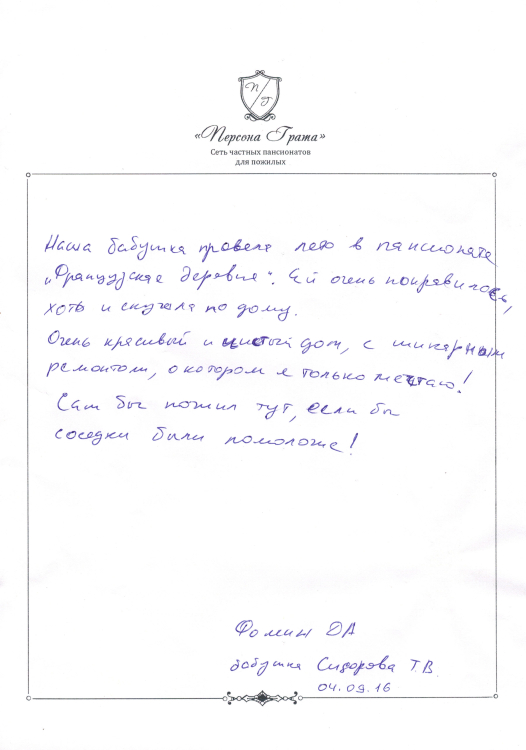 П/Г
«Персона Грата»
Сеть частных пансионатов
для пожилых
Наша бабушка провела лето в пансионате
„Французская деревня". Ей очень понравилось,
хоть и скучала по дому.
Очень красивый и чистый дом, с шикарным
ремонтом, о котором я только мечтаю!
Сам бы пожил тут, если бы
соседки были помоложе!
Фомин ДА
бабушка Сидорова Т.В.
04.09.16